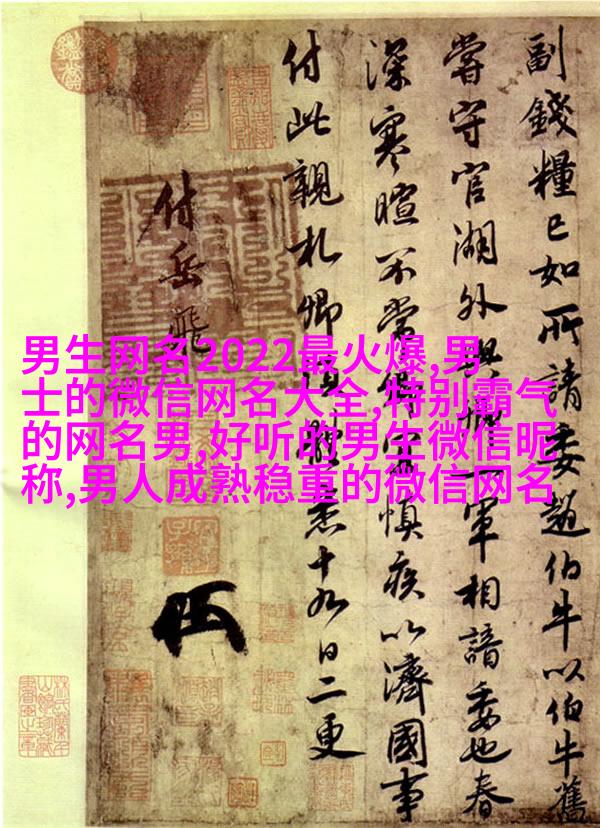 男生网名2022最火爆,男
士的微信网名大全,特别霸气
的网名男,好听的男生微信昵
称,男人成熟稳重的微信网名
副錢糧已如所請委趙伯牛以伯牛舊
嘗守官湖外與一軍相諳委也春
深寒暄不常卿宜慎疾以濟國事
付此親札卿須體悉十九日二更
付岳飛